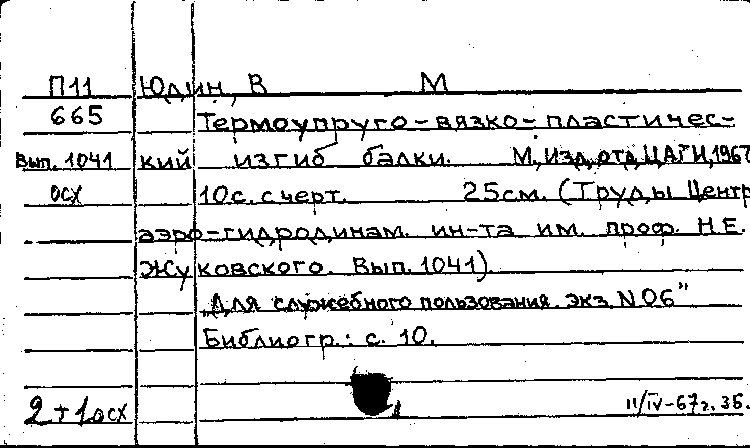 П11 Юдин, В М
665 Термоупруго-вязко-пластичес-
Вып. 1041 кий изгиб балки. М, Изд. отд. ЦАГИ, 1967
осх 10с. с черт. 25см. (Труды Центр
аэро-гидродинам. ин-та им. проф. Н.Е.
Жуковского. Вып. 1041)
"Для служебного пользования. экз. N 06"
Библиогр.: с. 10.
2+1осх 11/IV-67г. 35.